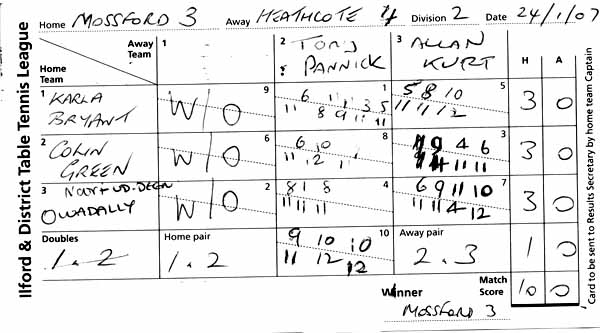 Home MOSSFORD 3 Away HEATHCOTE Division 2 Date 24/1/07
Ilford & District Table Tennis League
Away Team
Home Team
1
2 TONY PANNICK
3 ALLAN KURT
H A
1 KARLA BRYANT
9 W/O
1 6 11 3 5
11 8 9 11 11
5 5 8 10
11 11 12
3 0
2 COLIN GREEN
6 W/O
8 6 10
11 12
3 9 4 6
11 11
3 0
3
OWADALLY
2 W/O
4 8 1 8
11 11 11
7 6 9 11 10
11 11 4 12
3 0
Doubles
1.2
Home pair
1.2
10 9 10 10
11 12 12
Away pair
2.3
1 0
Winner
MOSSFORD 3
Match Score
10 0
Card to be sent to Results Secretary by home team Captain